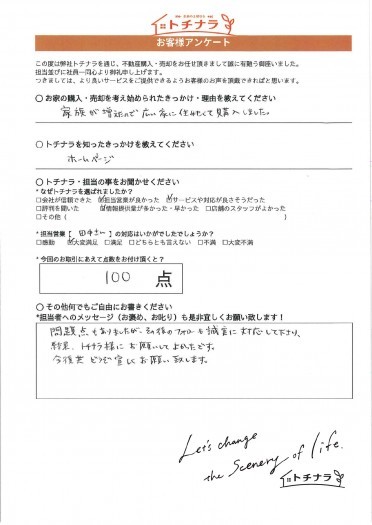 トチナラ
お客様アンケート
この度は弊社トチナラを通じ、不動産購入・売却をお任せ頂きまして誠に有難う御座いました。
担当並びに社員一同心より御礼申し上げます。
つきましては、より良いサービスをご提供できるようお客様のお声を頂戴できればと思います。
○ お家の購入・売却を考え始められたきっかけ・理由を教えてください
家族が増えたので広い家に住みたくて購入しました。
○ トチナラを知ったきっかけを教えてください
ホームページ
○ トチナラ・担当の事をお聞かせください
*なぜトチナラを選ばれましたか?
□会社が信頼できた ☑担当営業が良かった ☑サービスや対応が良さそうだった
□評判を聞いた ☑情報提供量が多かった・早かった □店舗のスタッフがよかった
□その他 ( )
*担当営業【田中さん】の対応はいかがでしたでしょうか?
□感動 ☑大変満足 □満足 □どちらとも言えない □不満 □大変不満
*今回のお取引にあえて点数をお付け頂くと?
100 点
○ その他何でもご自由にお書きください
*担当者へのメッセージ(お褒め、お叱り)も是非宜しくお願い致します!
問題点もありましたが、その後のフォローも誠実に対応して下さり、
結果、トチナラ様にお願いしてよかったです。
今後共どうぞ宜しくお願い致します。
Let's change
the Scenery of life.
トチナラ